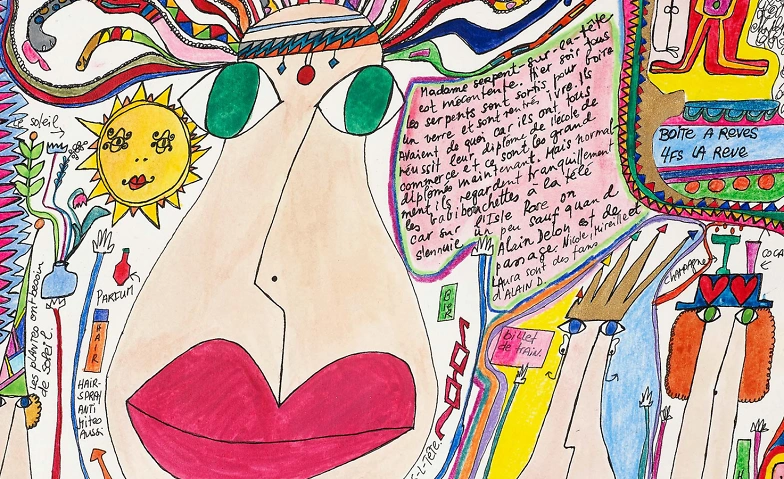 Madame serpent-sur-ça-tête
est mécontente. Hier soir tous
les serpents sont sortis pour boire
un verre et sont rentrés, ivre. Ils
Avaient de quoi car ils ont tous
réussit leur diplôme de l'école de
commerce et ce sont les grand
diplômés maintenant. Mais normal
ment ils regardent tranquillement
les rabibouchettes à la télé
car sur l'Isle Rose on
s'ennuie un peu sauf quand
Alain Delon est de
passage. Nicole, Mireille et
Laura sont des fans
d'ALAIN D.
le soleil
PARFUM
les plantes ont besoin
de soleil.
HAIR-
SPRAY
ANTI
mites
AUSSI
BOITE A REVES
4FS LA REVE
billet
de train.
CHAMPAGNE
COCA